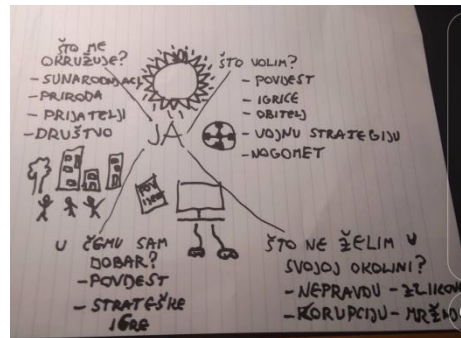 ŠTO ME
OKRUŽUJE?
- SUNARODNJACI
- PRIRODA
- PRIJATELJI
- DRUŠTVO
ŠTO VOLIM?
- POVIJEST
- IGRICE
- OBITELJ
- VOJNU STRATEGIJU
- NOGOMET
JA
U ČEMU SAM
DOBAR?
- POVIJEST
- STRATEŠKE
IGRE
ŠTO NE ŽELIM U
SVOJOJ OKOLINI?
- NEPRAVDU -
- KORUPCIJU -